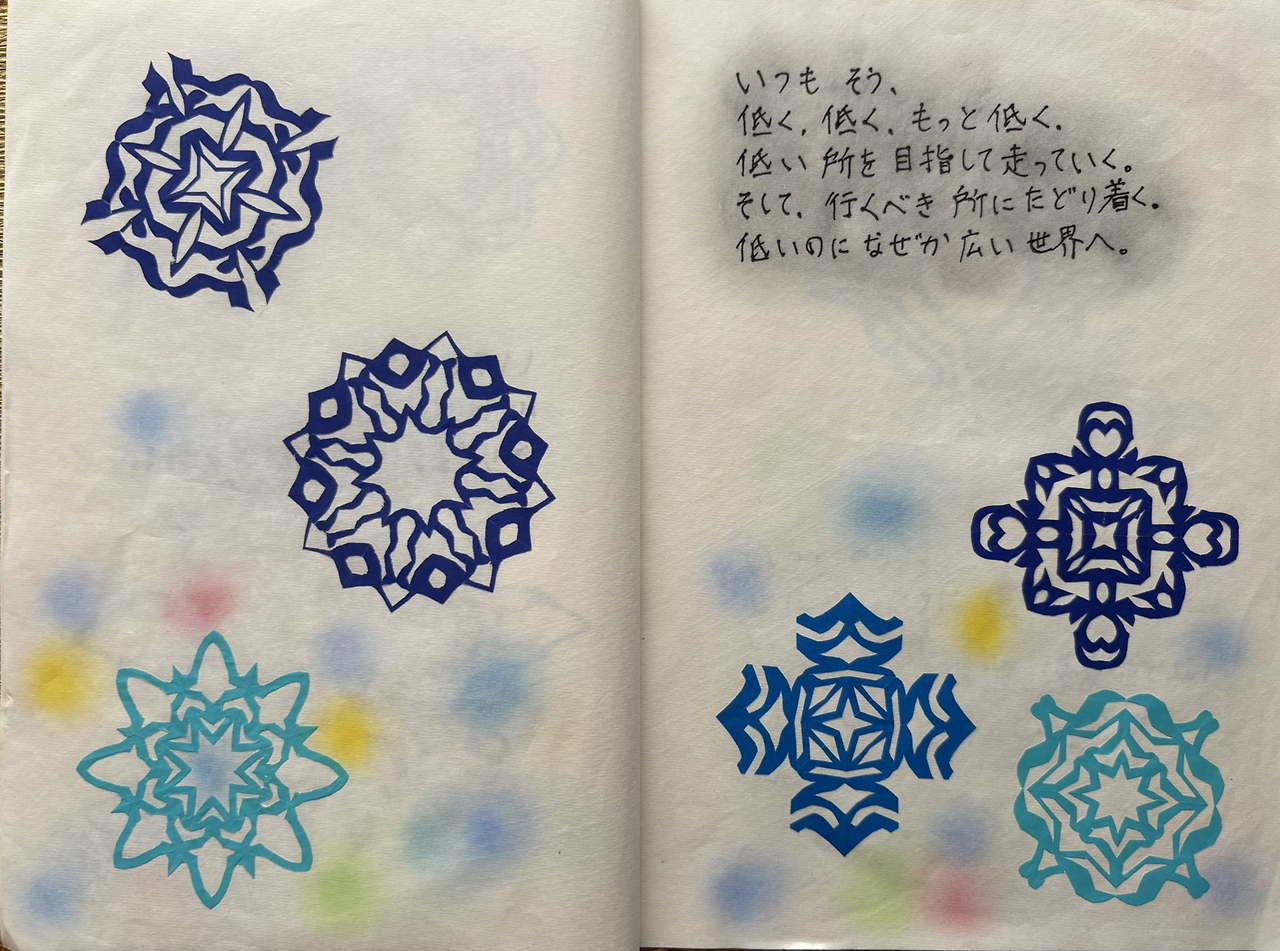 いつも そう、
低く、低く、もっと低く、
低い所を目指して走っていく。
そして、行くべき所にたどり着く。
低いのになぜか広い世界へ。